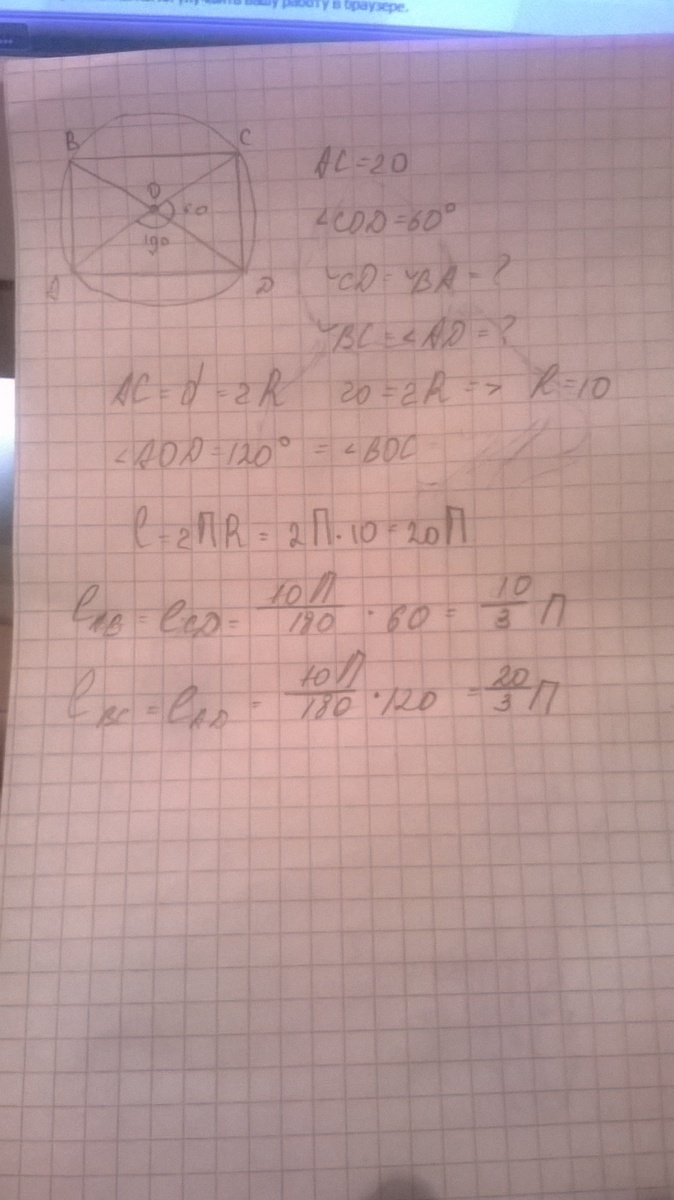 улучшить вашу работу в браузере.
B C
O
60
190
A D
AC = 20
∠COD = 60°
◡CD = ◡BA = ?
◡BC = ∠AD = ?
AC = d = 2R 20 = 2R => R = 10
∠AOD = 120° = ∠BOC
l = 2ПR = 2П · 10 = 20П
l_AB = l_CD = 10П/180 · 60 = 10/3 П
l_BC = l_AD = 10П/180 · 120 = 20/3 П